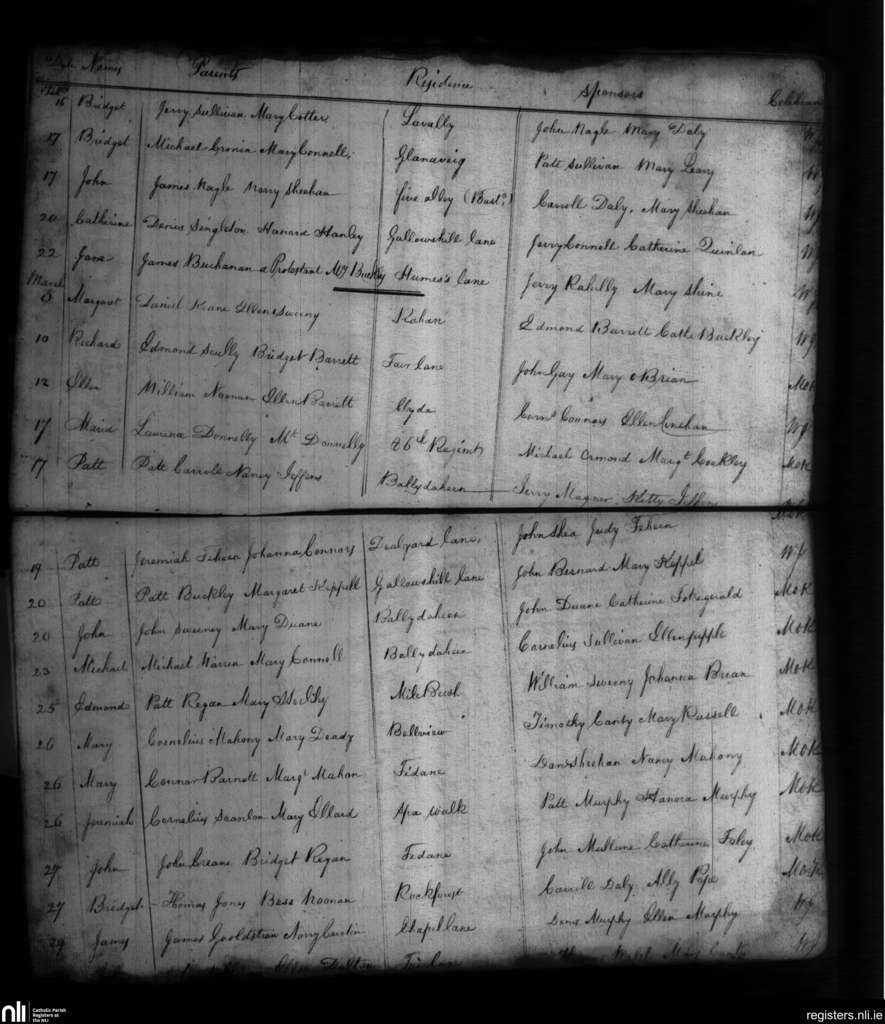 Names Parents Residence Sponsors
16 Bridget Jerry Sullivan Mary Cotter Lavally John Nagle Mary Daly
17 Bridget Michael Cronin Mary Connell Glandveig Patt Sullivan Mary Leary
17 John James Nagle Mary Sheehan five alley Carroll Daly, Mary Sheehan
20 Catherine Denis Singleton Hanora Hanley Gallowshill lane Jerry Connell Catherine Quinlan
22 Jane James Buchanan a Protestant My Buckley Humes's lane Jerry Rahilly Mary Shine
March
5 Margaret Daniel Keane Ellen Sweeny Rahan Edmond Barrett Cathe Buckley
10 Richard Edmond Scully Bridget Barrett Fair lane John Gay Mary OBrian MOK
12 Ellen William Noonan Ellen Barrett Clyda Corns Connors Ellen Linehan
17 Maria Donnelly Mt Donnelly 26th Regiment Michael Ormond Margt Coakley MOK
17 Patt Patt Carroll Nancy Jeffers Ballydaheen Jerry Magner Kitty
19 Patt Jeremiah Feheen Johanna Connors Dealyard lane, John Shea Judy Feheen
20 Patt Patt Buckley Margaret Keppell Gallowshill lane John Bernard Mary Keppel MOK
20 John John Sweeney Mary Duane Ballydaheen John Duane Catherine Fitzgerald MOK
23 Michael Michael Warren Mary Connell Ballydaheen Cornelius Sullivan Ellen MOK
25 Edmond Patt Regan Mary Mile Bush William Sweeny Johanna Brean MOK
26 Mary Cornelius Mahony Mary Deady Bellview Timothy Canty Mary Russell MOK
26 Mary Connor Barrett Margt Mahon Fidane Danl Sheehan Nancy Mahony MOK
26 Jeremiah Cornelius Scanlon Mary Ellard Spa walk Patt Murphy Hanora Murphy MOK
27 John John Creane Bridget Regan Fedane John Mullane Catherine Foley MOK
27 Bridget Thomas Jones Bess Noonan Rockforest Carrill Daly Ally Pope MOK
29 James James Nancy Curtin Chapel lane Denis Murphy Ellen Murphy
Dalton
nli
Catholic Parish
Registers at
the NLI
registers.nli.ie